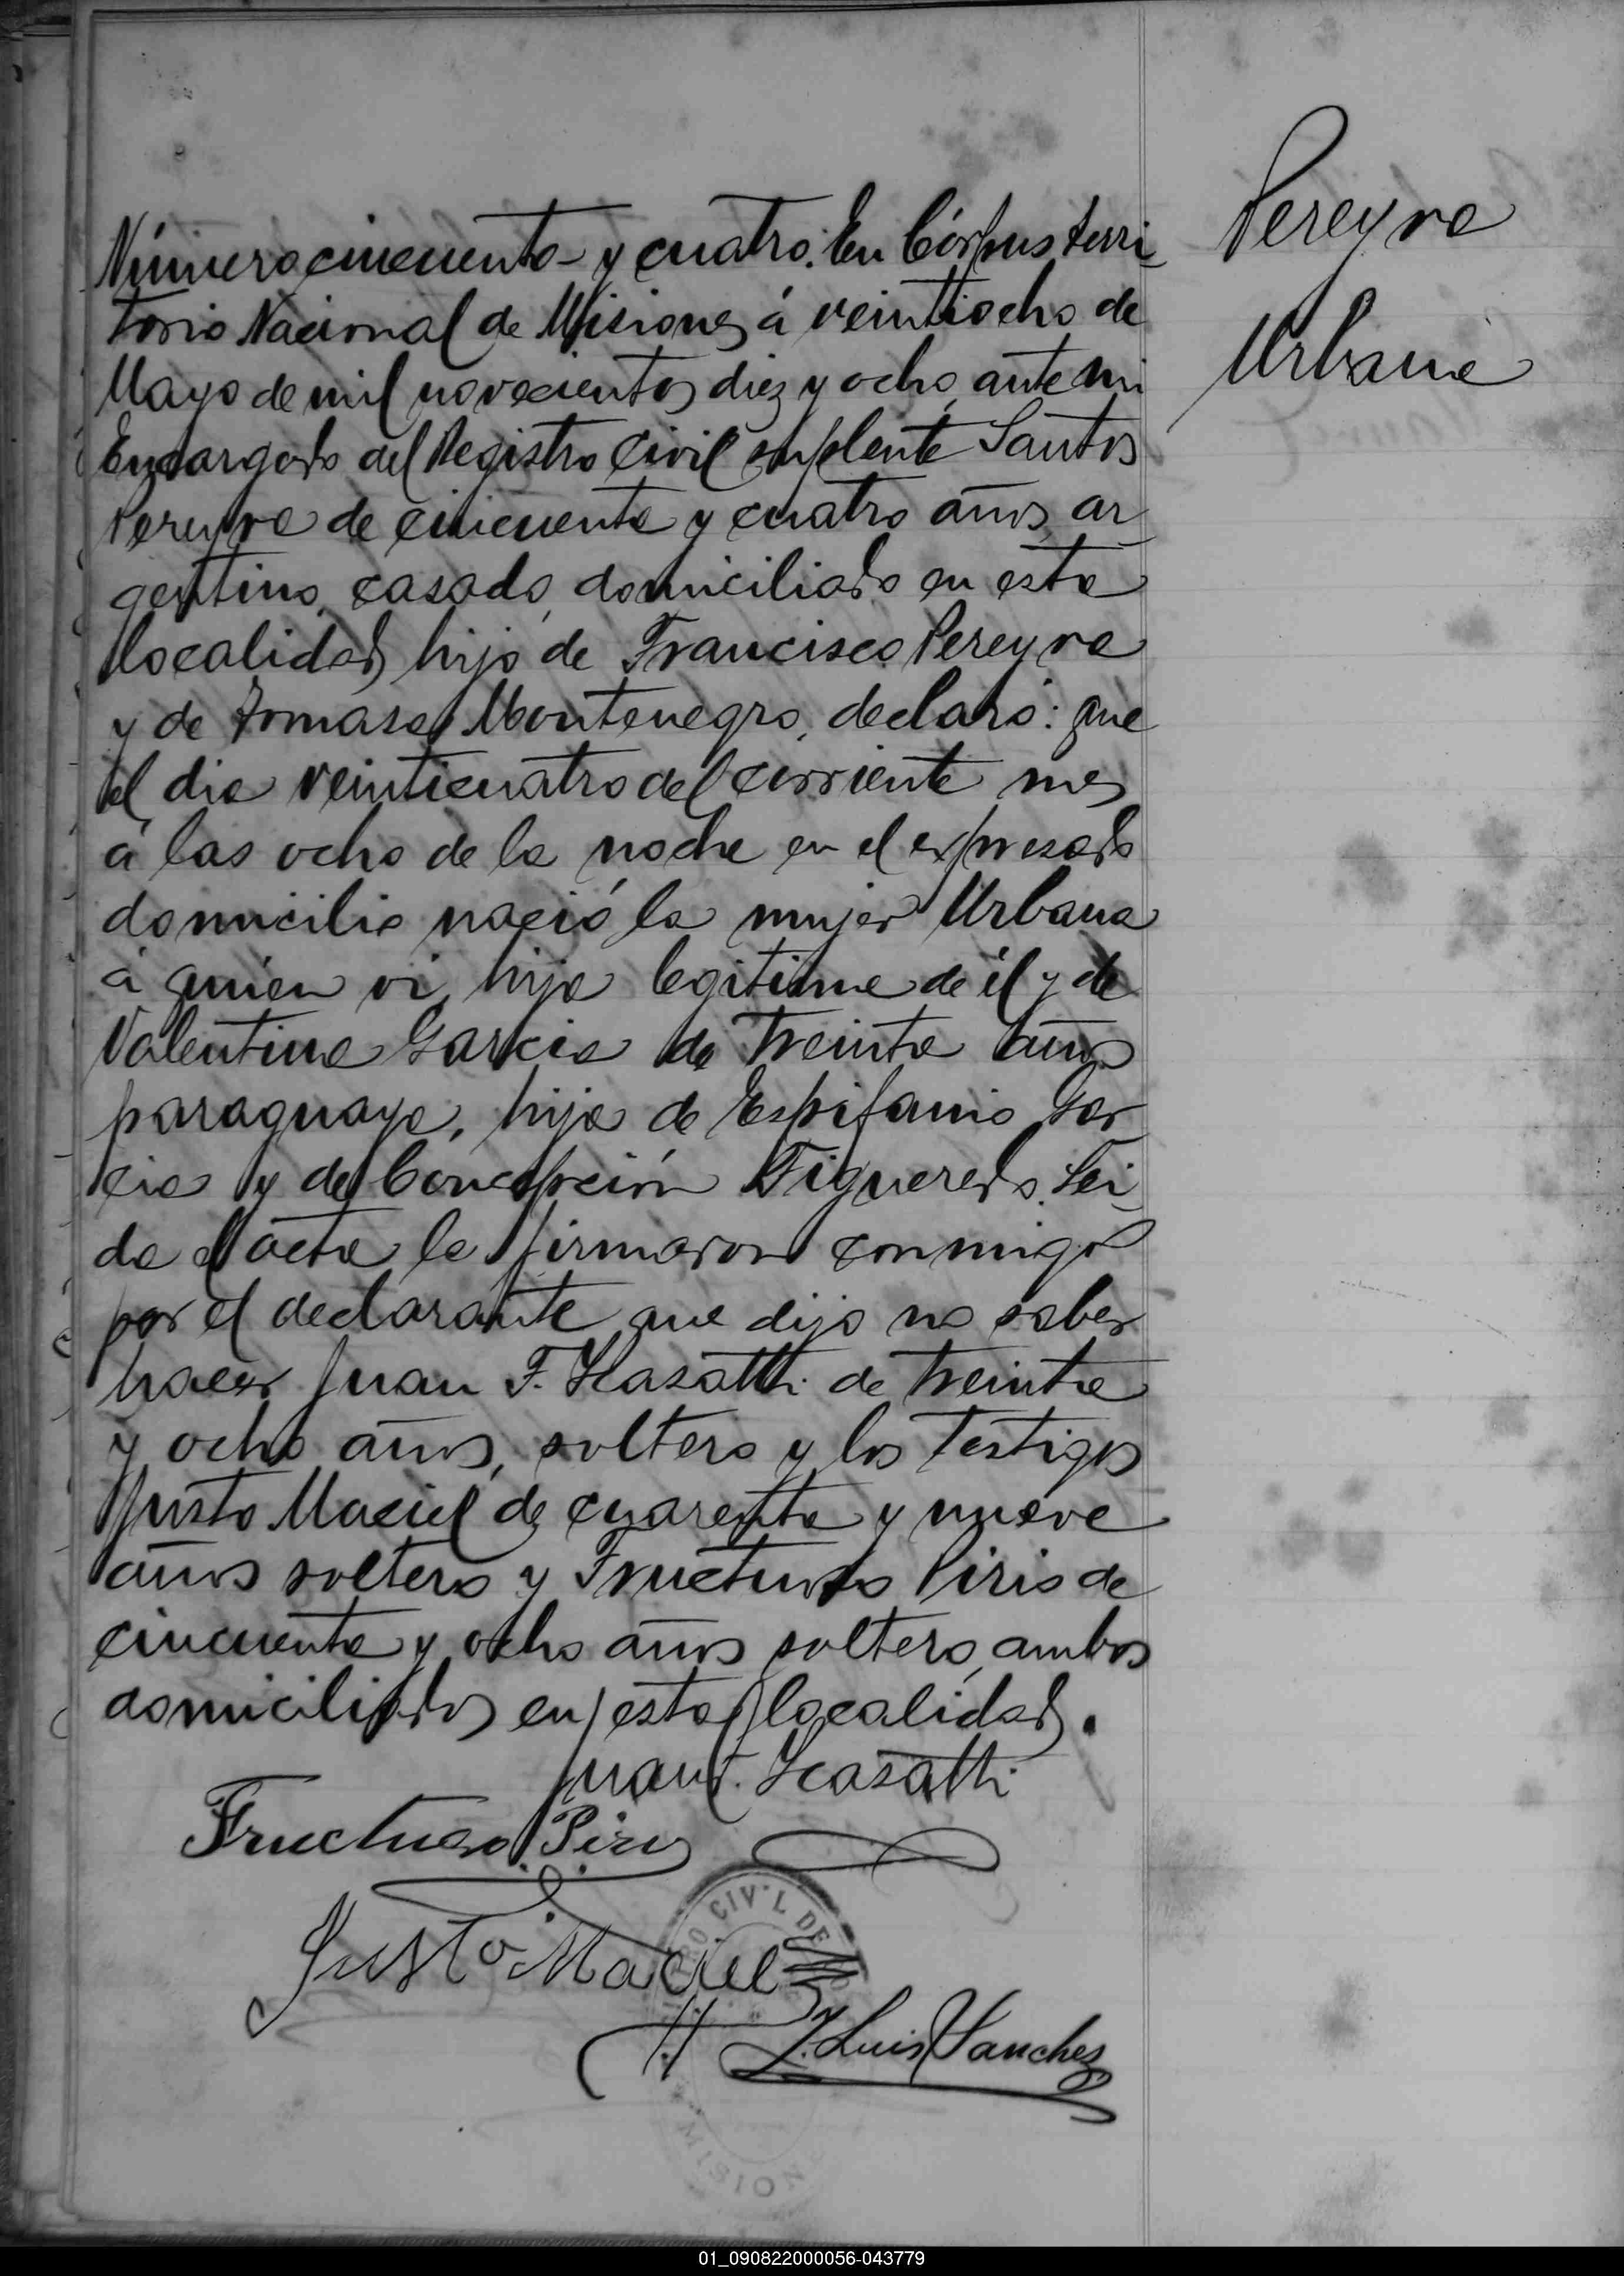 Pereyra
Urbana
Número cincuenta y cuatro: En Córpus, terri-
torio Nacional de Misiones á veintiocho de
Mayo de mil novecientos diez y ocho, ante mi
Encargado del Registro Civil suplente Santos
Pereyra de cincuenta y cuatro años, ar
gentino, casado, domiciliado en esta
localidad, hijo de Francisco Pereyra
y de Tomasa Montenegro, declaró: que
el dia veinticuatro del corriente mes
á las ocho de la noche en el expresado
domicilio nació la mujer Urbana
á quien vi, hija legitima de él y de
Valentina Garcia de treinta años
paraguaya, hija de Espifanio Gar
cia y de Concepción Figueredo. Lei-
da el acta la firmaron conmigo
por el declarante que dijo no saber
hacer Juan F. Scasatti de treinta
y ocho años, soltero y los testigos
Justo Maciel de cuarenta y nueve
años soltero y Fructuoso Piris de
cincuenta y ocho años soltero, ambos
domiciliados en esta localidad.
Juan F. Scasatti
Fructuoso Piris
Justo Maciel
J. Luis Sanchez
CIVIL DE
MISIO
01_090822000056-043779